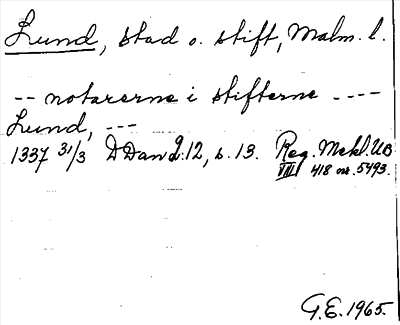 Lund, stad o. stift, Malm. l.
-- notarerne i stifterne ----
Lund, ---
1337 31/3 DDan 2:12, s. 13. Reg. Mekl. UB
VIII 418 nr. 5493.
G.E. 1965.